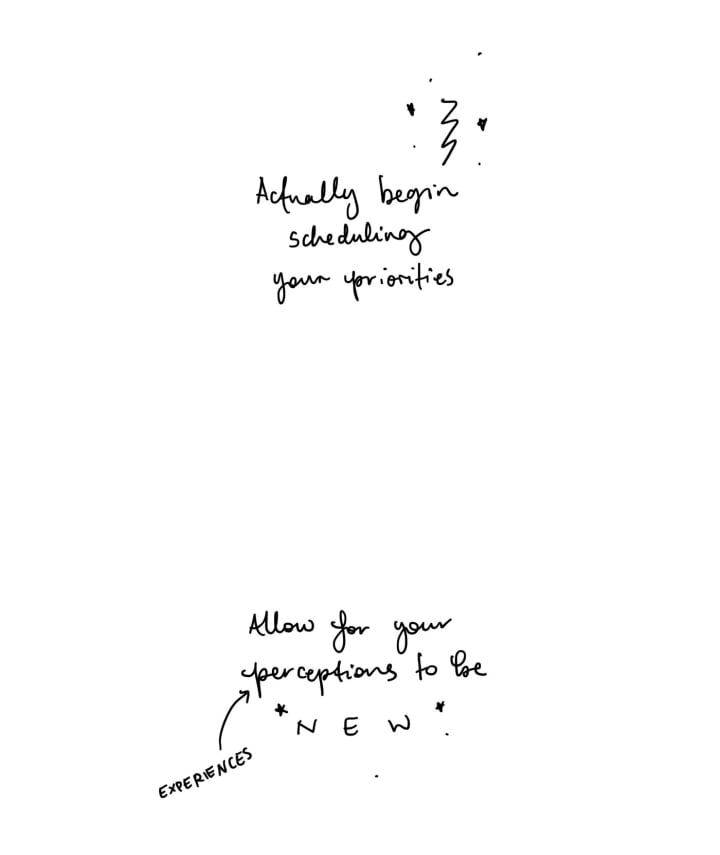 Actually begin
scheduling
your priorities
Allow for your
perceptions to be
*NEW*
EXPERIENCES